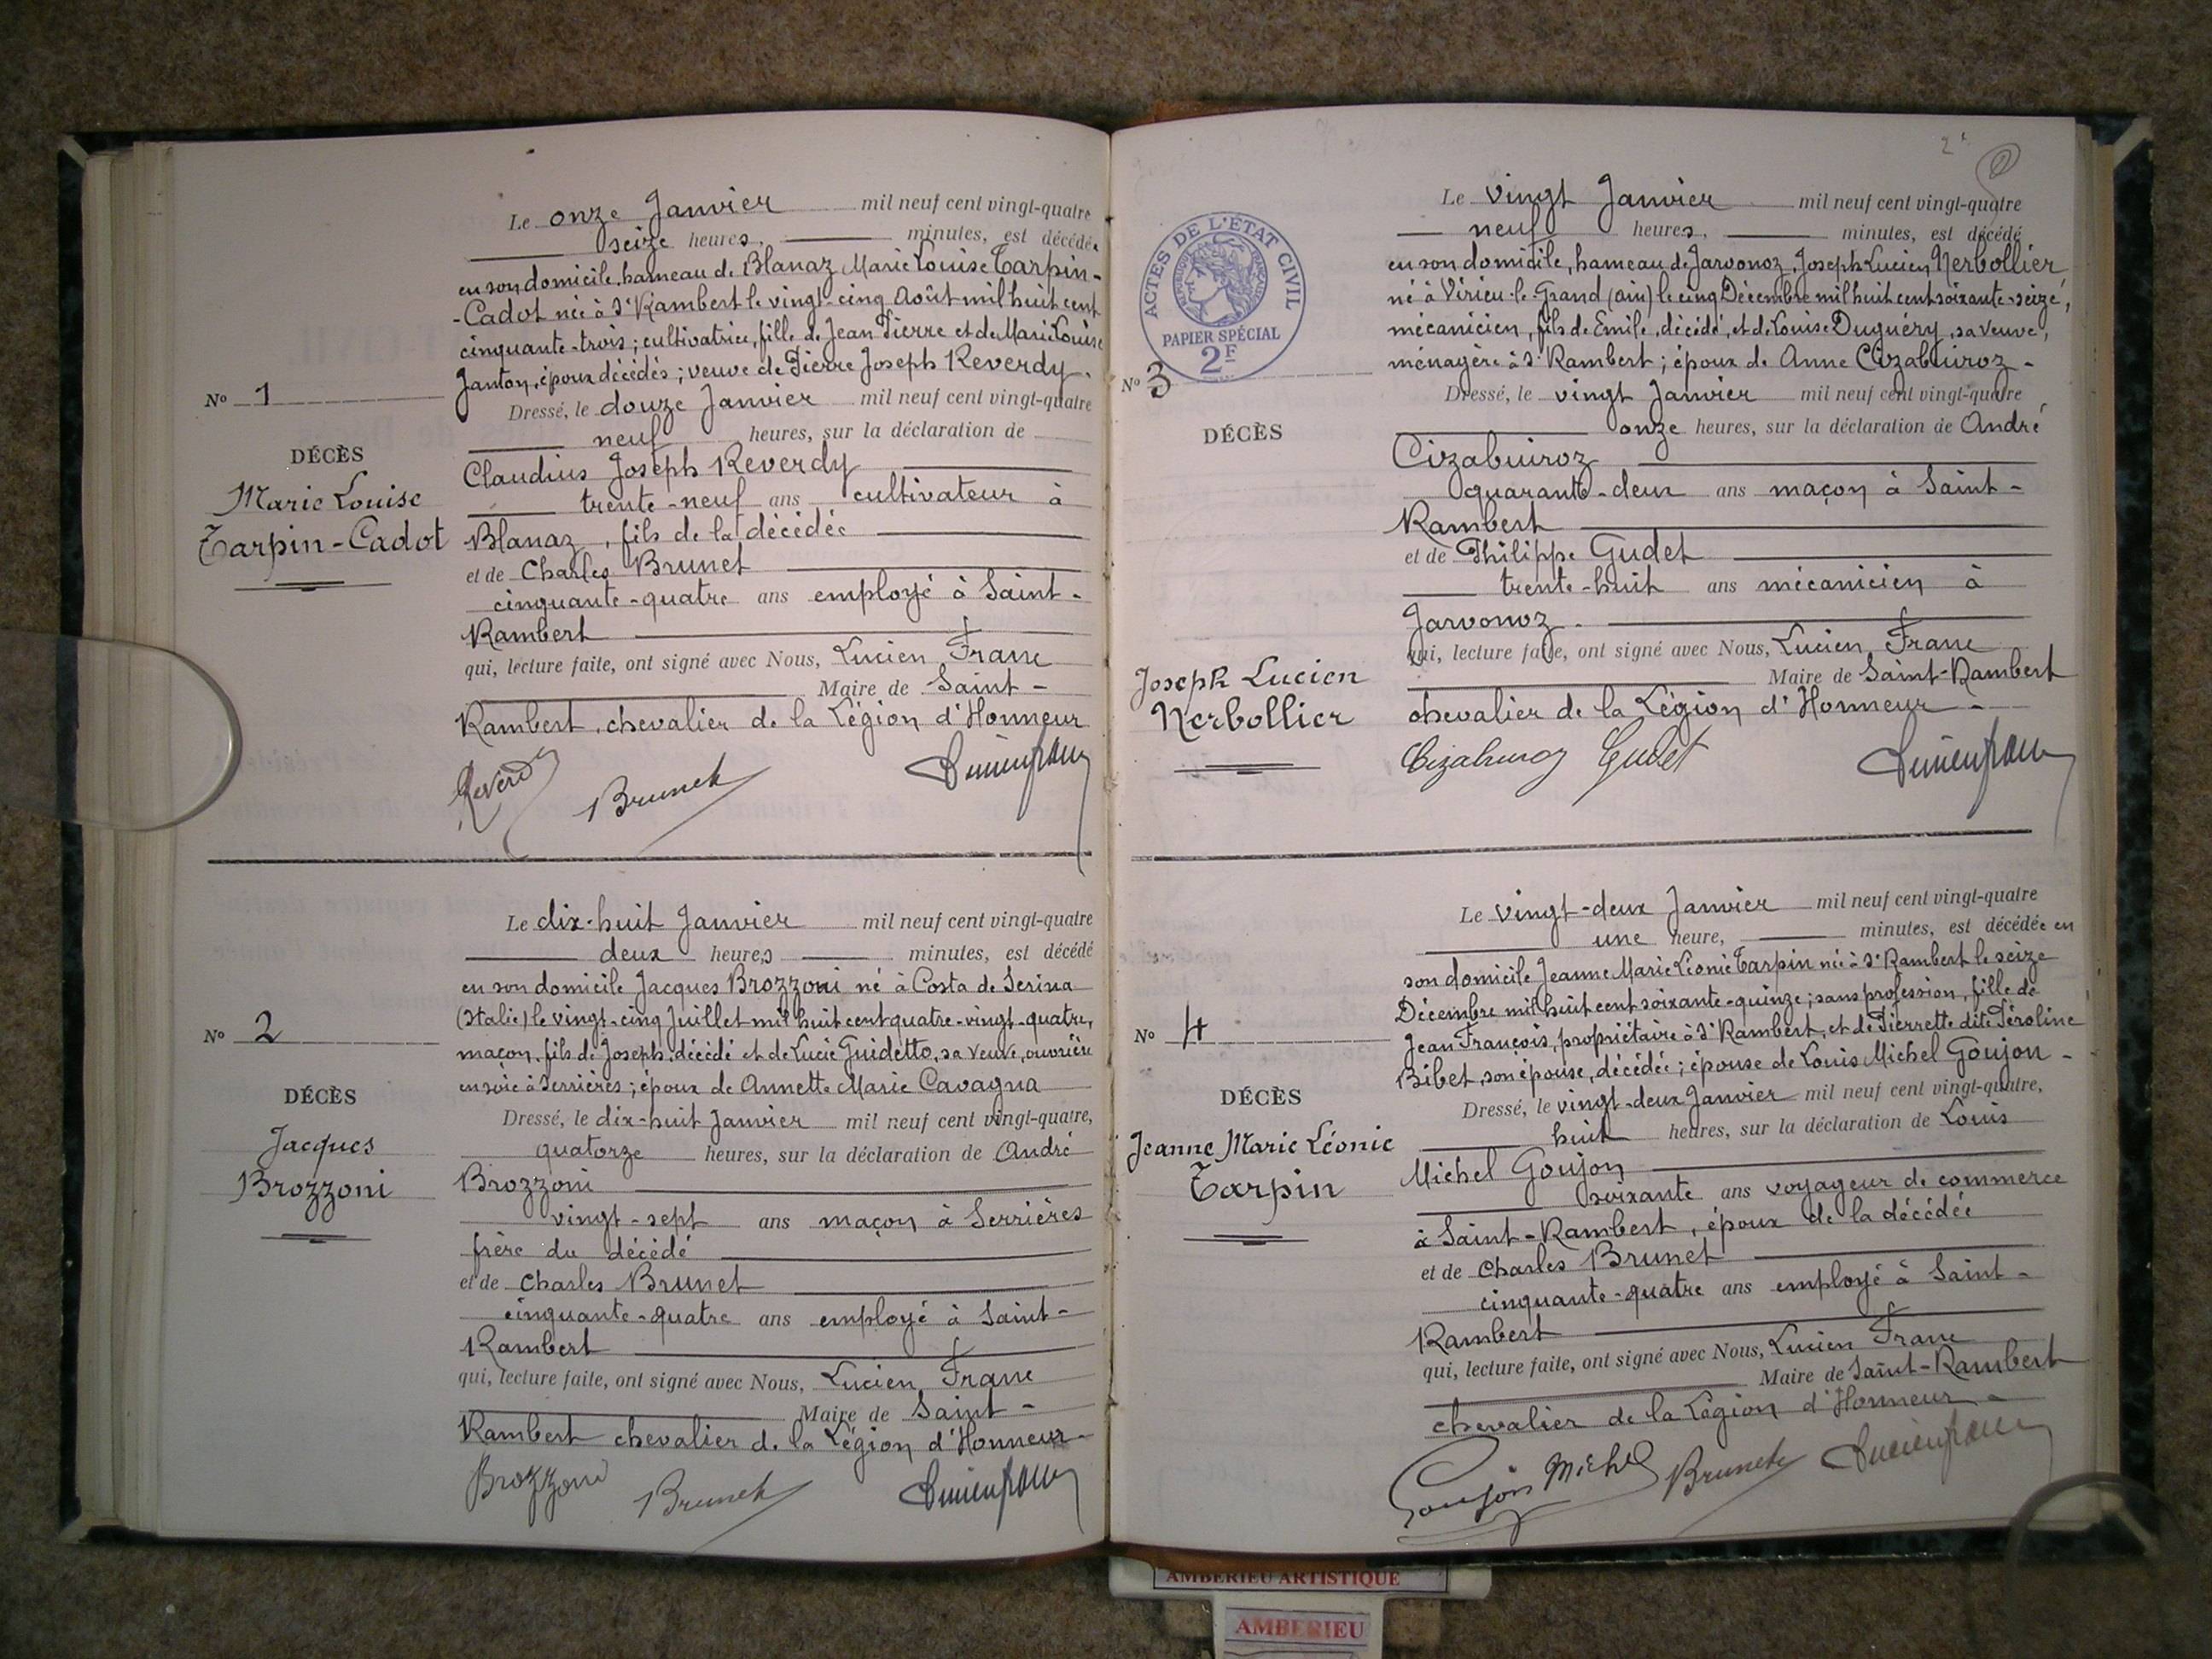 Le onze Janvier mil neuf cent vingt-quatre
seize heures, minutes, est décédée
en son domicile, hameau de Blanaz Marie Louise Tarpin-
-Cadot née à St Rambert le vingt-cinq Août mil huit cent
cinquante-trois; cultivatrice, fille de Jean Pierre et de Marie Louise
Janton, époux décédés; veuve de Pierre Joseph Reverdy.
No 1
Dressé, le douze Janvier mil neuf cent vingt-quatre
neuf heures, sur la déclaration de
DÉCÈS
Marie Louise
Tarpin-Cadot
Claudius Joseph Reverdy
trente-neuf ans cultivateur à
Blanaz, fils de la décédée
et de Charles Brunet
cinquante-quatre ans employé à Saint-
Rambert
qui, lecture faite, ont signé avec Nous, Lucien Franc
Maire de Saint-
Rambert, chevalier de la Légion d'Honneur
Reverdy Brunet Lucien Franc
Le dix-huit Janvier mil neuf cent vingt-quatre
deux heures minutes, est décédé
en son domicile Jacques Brozzoni né à Costa de Serina
(Italie) le vingt-cinq Juillet mil huit cent quatre-vingt-quatre,
maçon, fils de Joseph, décédé et de Lucie Guidetto, sa veuve, ouvrière
en soie à Serrières; époux de Annette Marie Cavagna
No 2
DÉCÈS
Jacques
Brozzoni
Dressé, le dix-huit Janvier mil neuf cent vingt-quatre,
quatorze heures, sur la déclaration de André
Brozzoni
vingt-sept ans maçon à Serrières
frère du décédé
et de Charles Brunet
cinquante-quatre ans employé à Saint-
Rambert
qui, lecture faite, ont signé avec Nous, Lucien Franc
Maire de Saint-
Rambert chevalier de la Légion d'Honneur-
Brozzoni Brunet Lucien Franc
2
ACTES DE L'ÉTAT CIVIL
RÉPUBLIQUE FRANÇAISE
PAPIER SPÉCIAL
2F
Le vingt Janvier mil neuf cent vingt-quatre
neuf heures, minutes, est décédé
en son domicile, hameau de Javornoz, Joseph Lucien Nerbollier
né à Virieu-le-Grand (ain) le cinq Décembre mil huit cent soixante-seize,
mécanicien, fils de Emile, décédé, et de Louise Duguéry, sa veuve,
ménagère à St Rambert; époux de Anne Cizabuiroz -
No 3
DÉCÈS
Joseph Lucien
Nerbollier
Dressé, le vingt Janvier mil neuf cent vingt-quatre
onze heures, sur la déclaration de André
Cizabuiroz
quarante-deux ans maçon à Saint-
Rambert
et de Philippe Gudet
trente-huit ans mécanicien à
Javornoz.
qui, lecture faite, ont signé avec Nous, Lucien Franc
Maire de Saint-Rambert
chevalier de la Légion d'Honneur -
Cizabuiroz Gudet Lucien Franc
Le vingt-deux Janvier mil neuf cent vingt-quatre
une heure, minutes, est décédée en
son domicile Jeanne Marie Léonie Tarpin née à St Rambert le seize
Décembre mil huit cent soixante-quinze; sans profession, fille de
Jean François, propriétaire à St Rambert, et de Pierrette dite Péroline
Bibet, son épouse, décédée; épouse de Louis Michel Goujon -
No 4
DÉCÈS
Jeanne Marie Léonie
Tarpin
Dressé, le vingt-deux Janvier mil neuf cent vingt-quatre,
huit heures, sur la déclaration de Louis
Michel Goujon
soixante ans voyageur de commerce
à Saint-Rambert, époux de la décédée
et de Charles Brunet
cinquante-quatre ans employé à Saint-
Rambert
qui, lecture faite, ont signé avec Nous, Lucien Franc
Maire de Saint-Rambert
chevalier de la Légion d'Honneur -
Goujon Michel Brunet Lucien Franc
AMBERIEU ARTISTIQUE
AMBERIEU